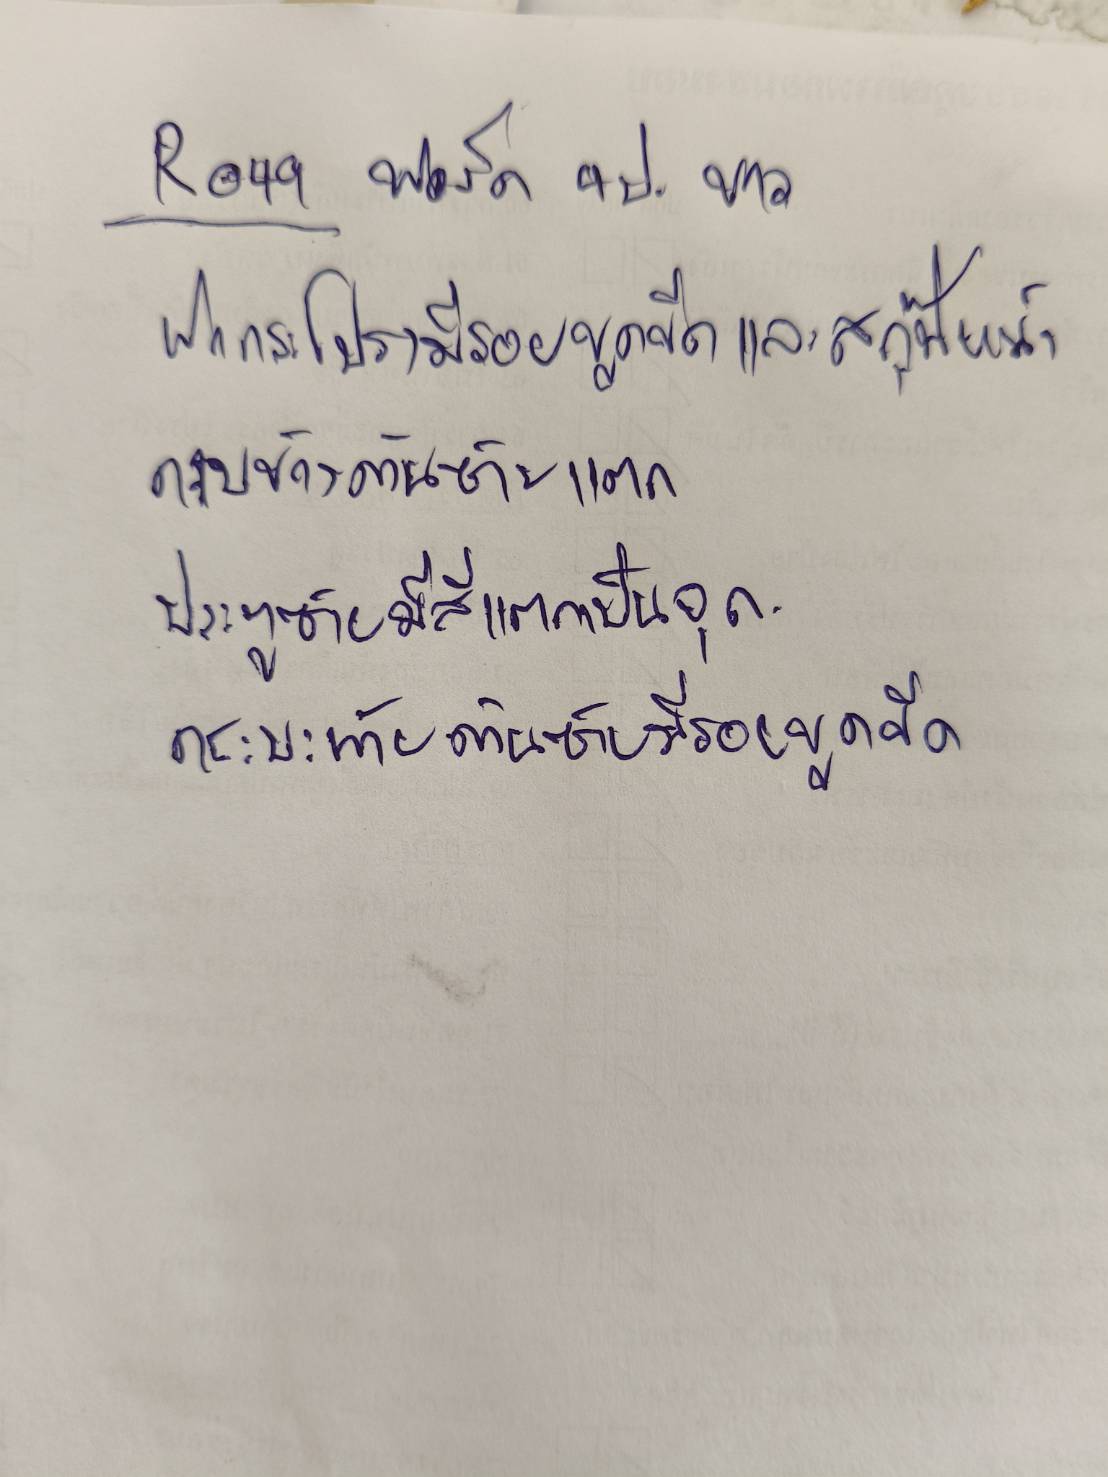 R049 ฟอร์ด 4ป. ขาว
ฝากระโปรงมีรอยขูดขีดและสกู๊ปหน้า
คาบข้างด้านซ้ายแตก
ประตูซ้ายมีสีแตกเป็นจุด.
กระบะท้ายด้านซ้ายมีรอยขูดขีด